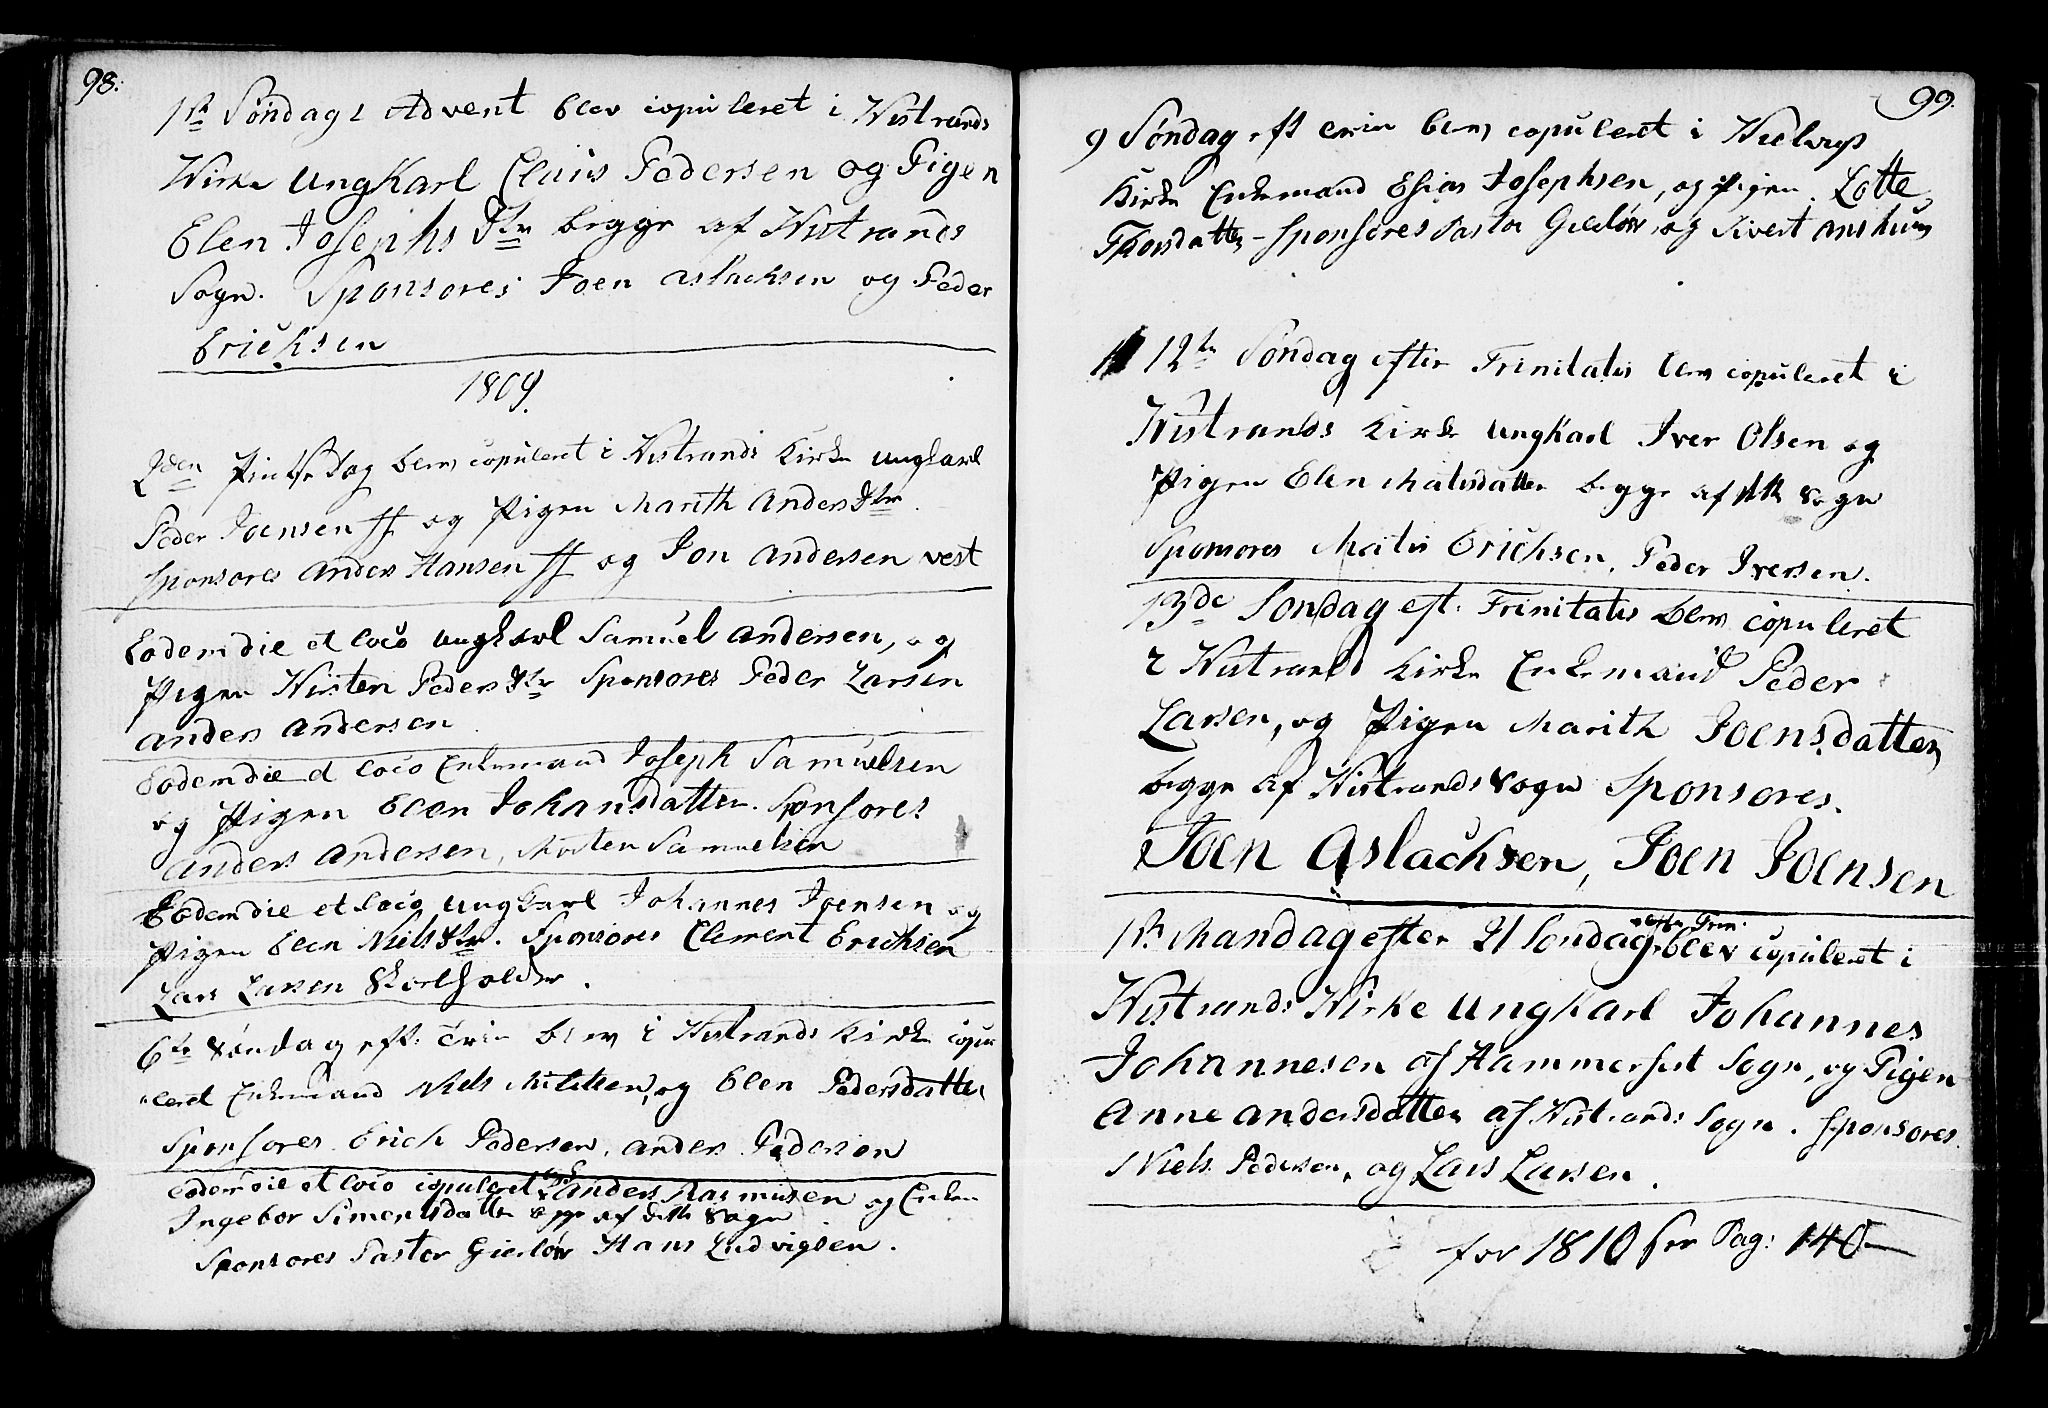 98.
1ste Søndag i Advent blev copuleret i Kistrands
Kirke UngKarl Claus Pedersen og Pigen
Elen Josephs Dtr begge af Kistrands
Sogn. Sponsores Joen Aslachsen og Peder
Erichsen
1809.
2den Pintsedag blev copuleret i Kistrands Kirke ungkarl
Peder Joensen og Pigen Marith Anders Dtr.
Sponsores Anders Hansen og Jon Andersen vest
Eodem die et loco ungkarl Samuel Andersen, og
Pigen Kirsten Peders Dtr Sponsores Peder Larsen
Anders Andersen
Eodem die et loco Enkemand Joseph Samuelsen
og Pigen Elen Johansdatter. Sponsores
Anders Andersen, Morten Samuelsen
Eodem die et loco Ungkarl Johannes Joensen og
Pigen Elen Niels Dtr. Sponsores Clement Erichsen
Lars Larsen
6te Søndag eft. Trin blev i Kistrands Kirke copu
leret Enkemand Niels Michelsen, og Elen Pedersdatter
Sponsores Erich Pedersen, Anders Pedersen
eodem die et loco copuleret Anders Rasmusen og Enken
Ingebor Simonsdatter begge af dette Sogn
Sponsores Pastor Gierløw Hans Ludvigsen.
99.
9 Søndag eft Trin blev copuleret i Kielvigs
Kirke Enkemand Esias Josephsen, og Pigen Lotte
Thorsdatter - Sponsores Pastor Gierløw og Sivert
12te Søndag efter Trinitatis blev copuleret i
Kistrands Kirke UngKarl Iver Olsen og
Pigen Elen Matisdatter begge af dette Sogn
Sponsores Matis Erichsen, Peder Iversen.
13de Søndag eft. Trinitatis blev copuleret
i Kistrand Kirke Enkemand Peder
Larsen, og Pigen Marith Joensdatter
begge af Kistrands Sogn Sponsores.
Joen Aslachsen, Joen Joensen
efter Trin.
1ste Mandag efter 21 Søndag blev copuleret i
Kistrands Kirke UngKarl Johannes
Johannesen af Hammerfest Sogn, og Pigen
Anne Andersdatter af Kistrands Sogn. Sponsores
Niels Pedersen, og Lars Larsen.
for 1810 see Pag: 140